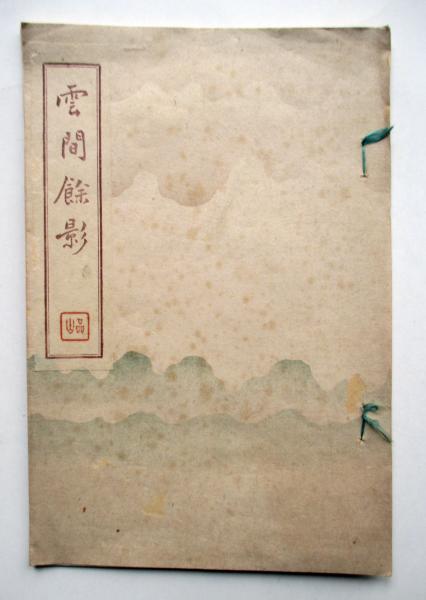 雲間餘影